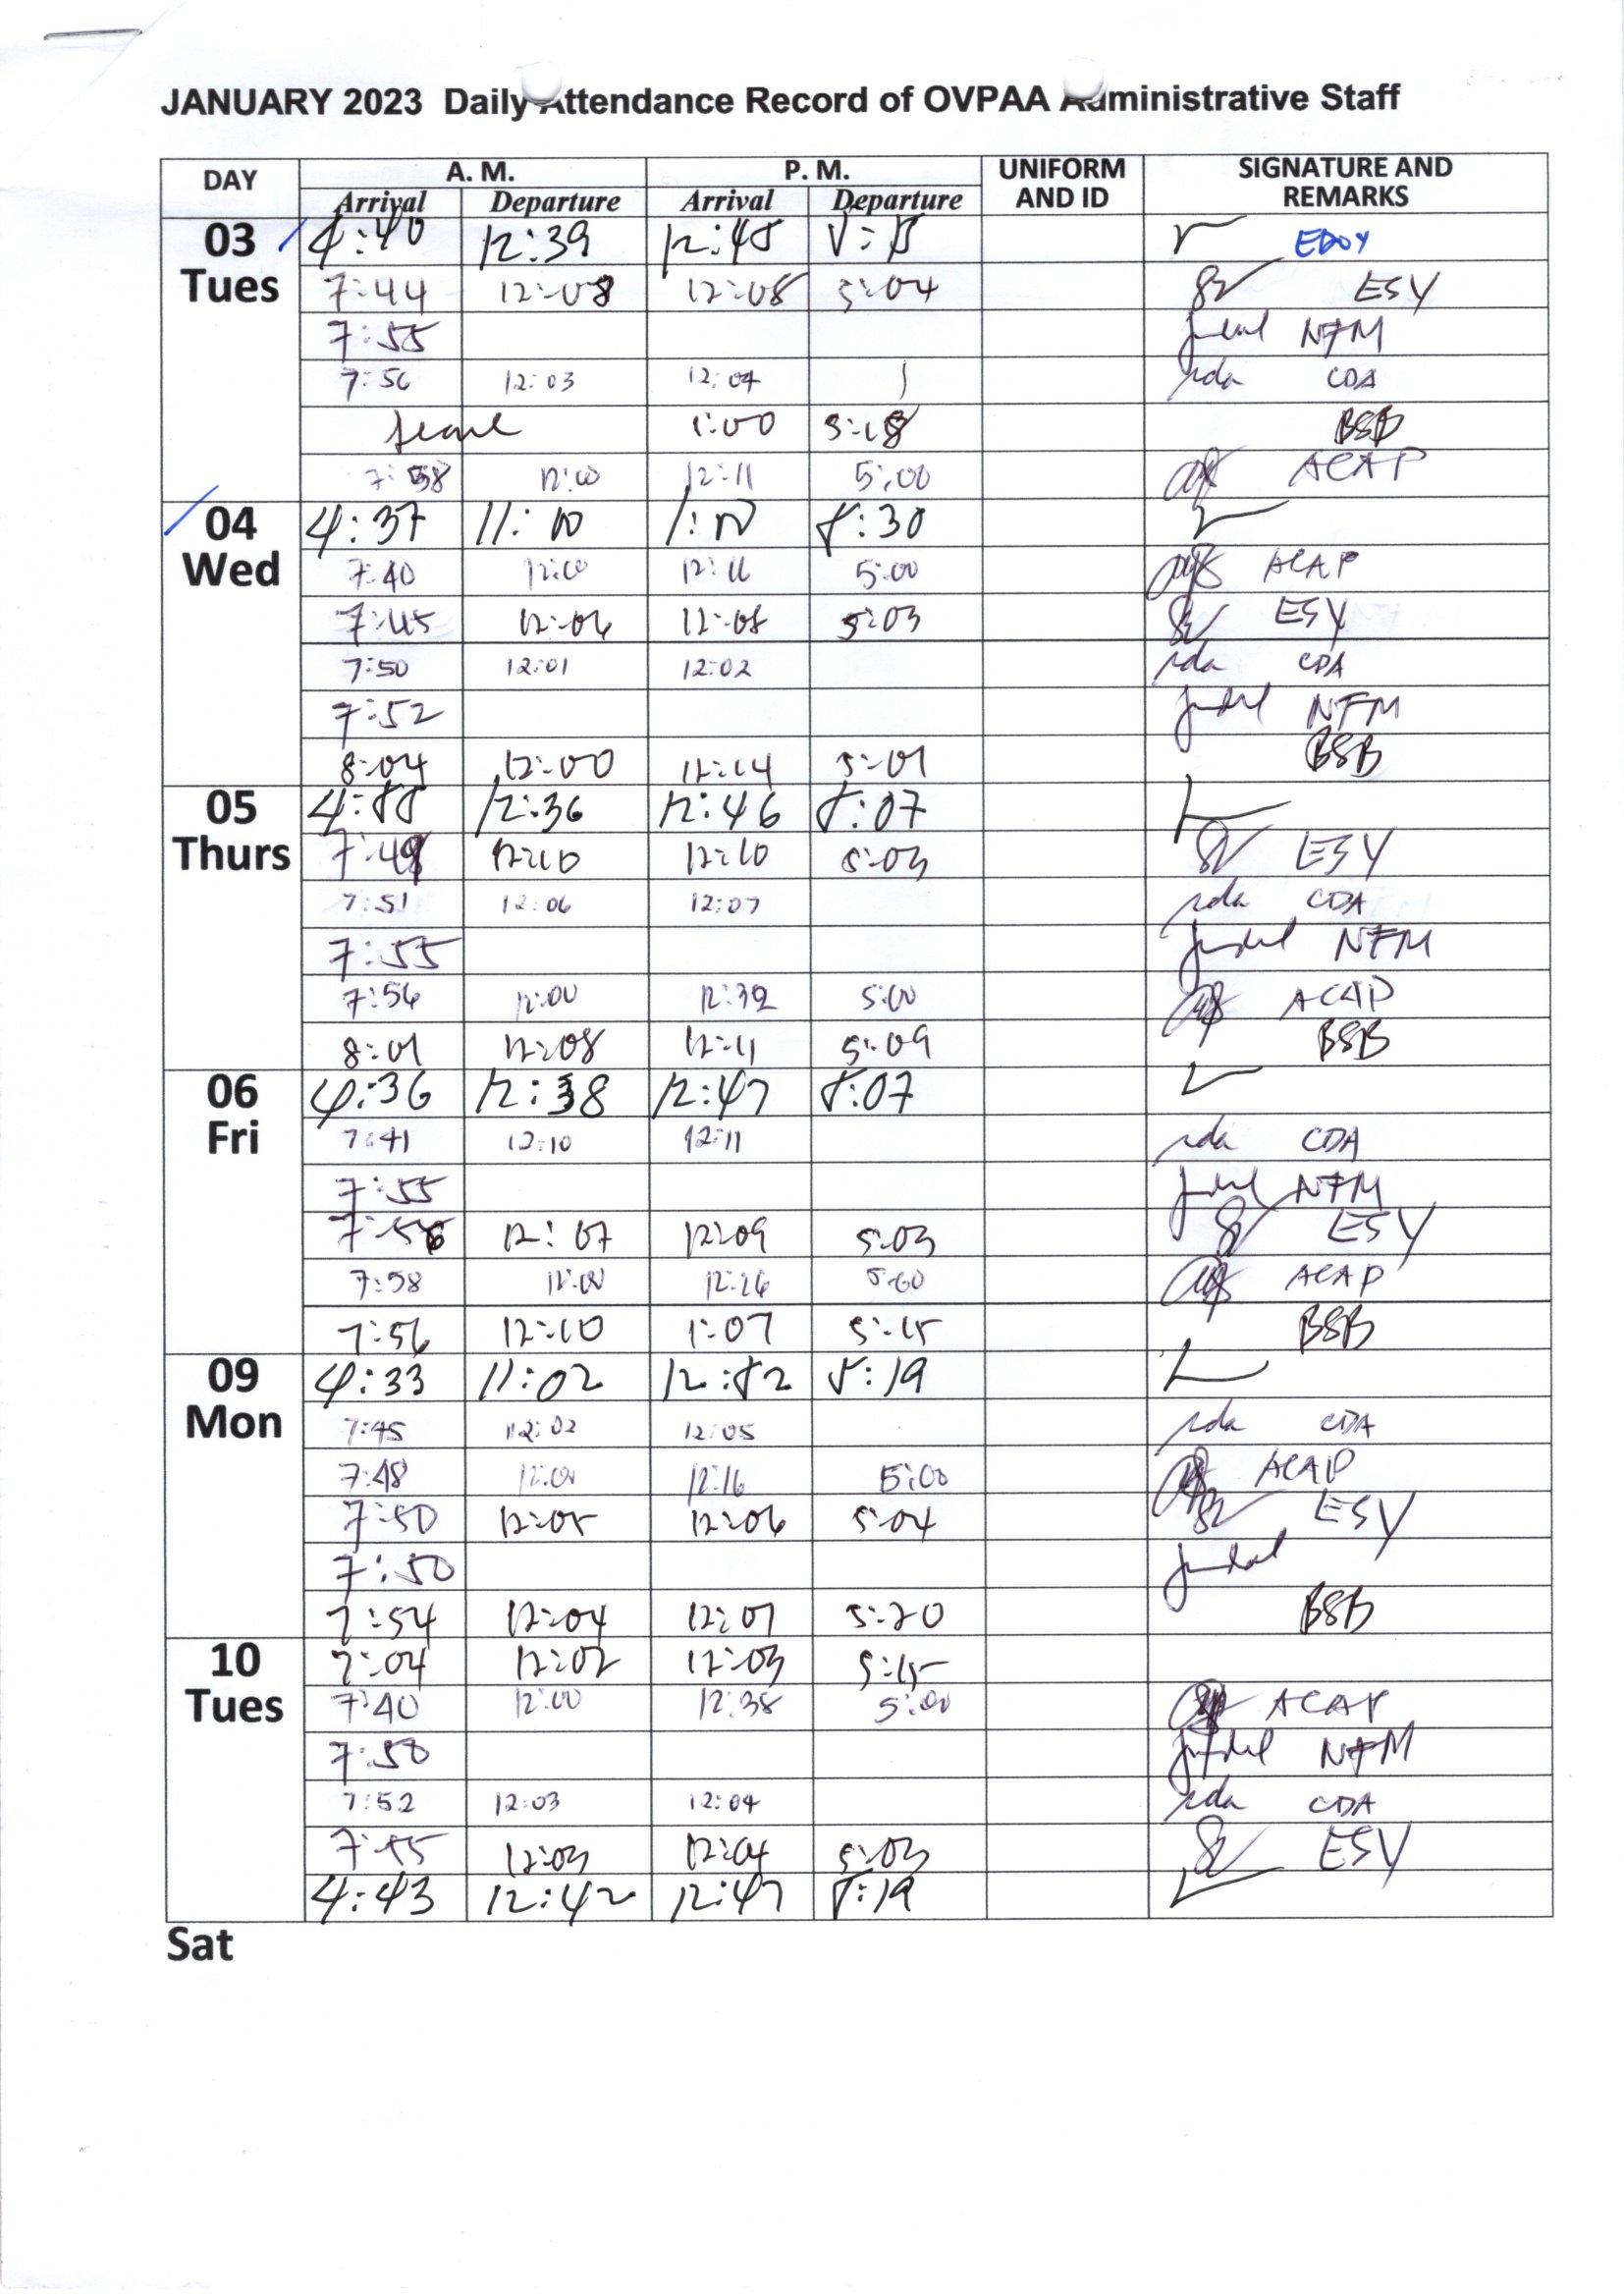 JANUARY 2023 Daily Attendance Record of OVPAA Administrative Staff
DAY A. M. P. M. UNIFORM AND ID SIGNATURE AND REMARKS
Arrival Departure Arrival Departure
03 Tues
4:40 12:39 12:48 EDOY
7:44 12:08 12:08 5:04 ESY
7:55 NFM
7:56 12:03 12:04 CDA
1:00 5:18 BSB
7:58 12:00 12:11 5:00 ACAP
04 Wed
4:37 11:10 5:30
7:40 12:00 12:11 5:00 ACAP
7:45 12:06 12:08 5:03 ESY
7:50 12:01 12:02 CDA
7:52 NFM
8:04 12:00 12:14 5:01 BSB
05 Thurs
4:55 12:36 12:46 5:07
7:49 12:10 12:10 5:03 ESY
7:51 12:06 12:07 CDA
7:55 NFM
7:56 12:00 12:32 5:00 ACAP
8:01 12:08 12:11 5:09 BSB
06 Fri
4:36 12:38 12:47 5:07
7:41 12:10 12:11 CDA
7:55 NFM
7:56 12:07 12:09 5:03 ESY
7:58 12:00 12:26 5:00 ACAP
7:56 12:10 1:07 5:15 BSB
09 Mon
4:33 11:02 12:52 5:19
7:45 12:02 12:05 CDA
7:48 12:00 12:16 5:00 ACAP
7:50 12:05 12:06 5:04 ESY
7:50
7:54 12:04 12:07 5:20 BSB
10 Tues
7:04 12:02 12:03 5:15
7:40 12:00 12:38 5:00 ACAP
7:50 NFM
7:52 12:03 12:04 CDA
7:55 12:03 12:04 5:03 ESY
4:43 12:42 12:47 5:19
Sat